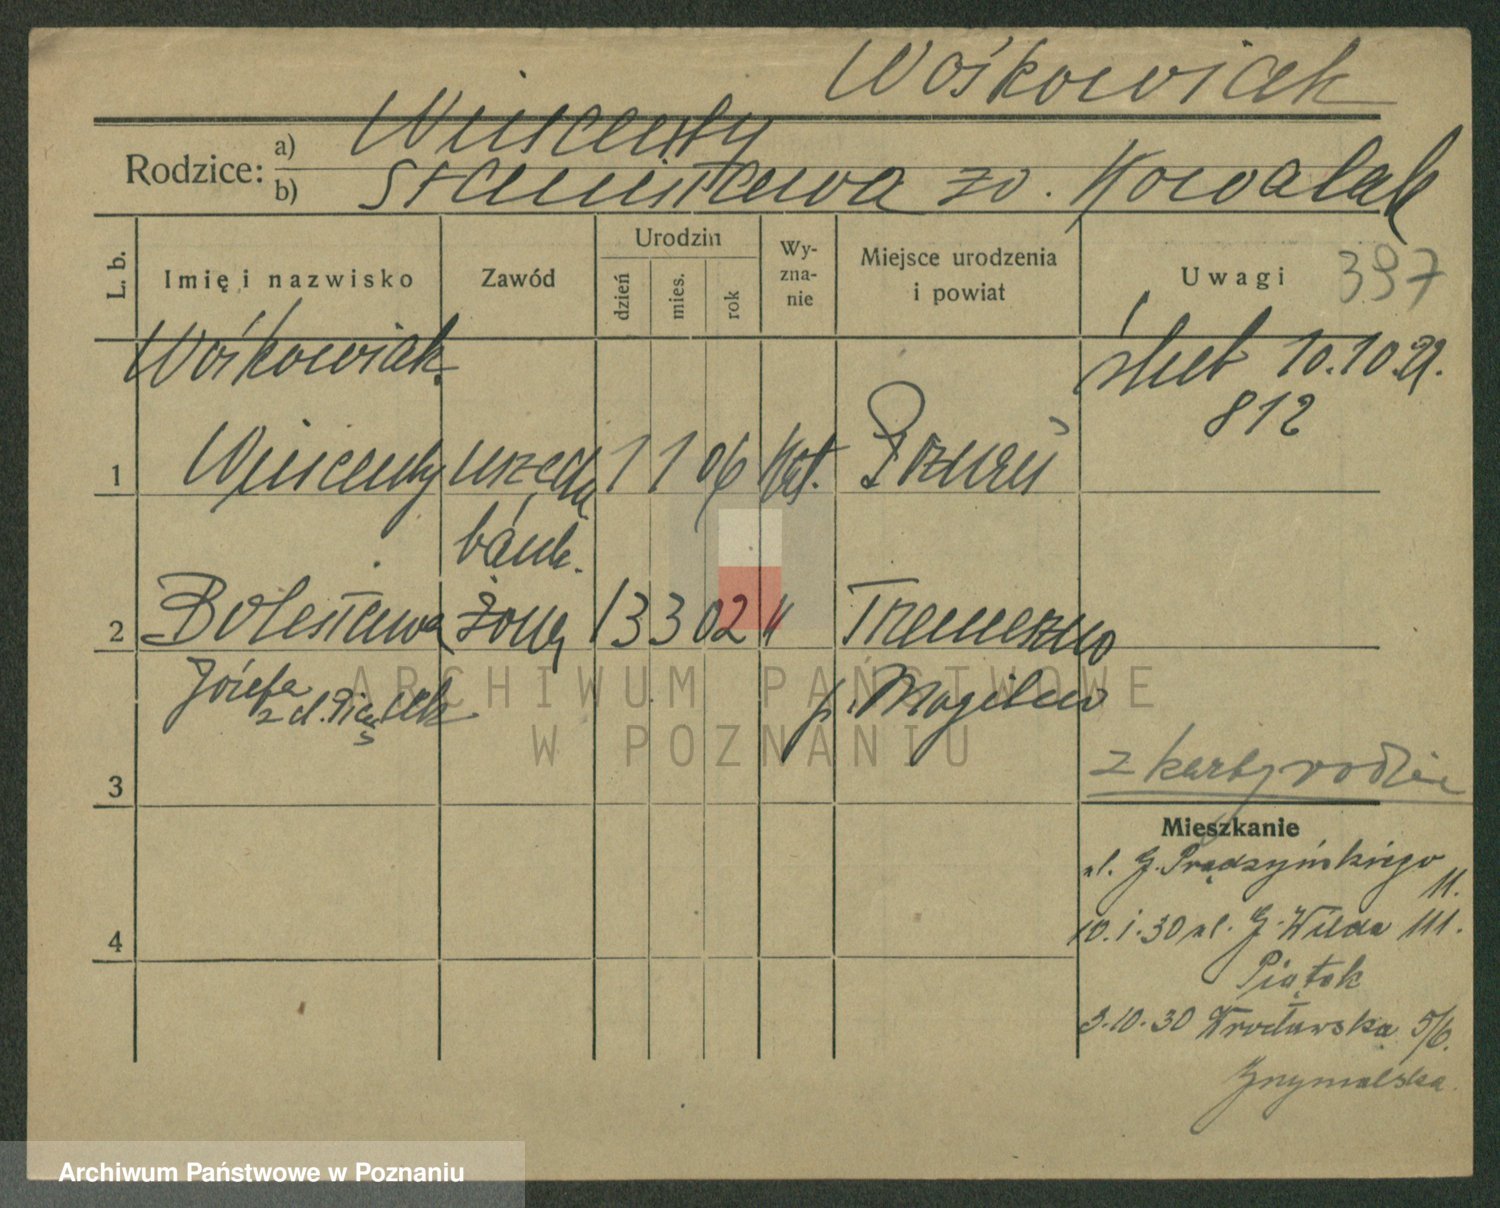 Wośkowiak
Rodzice: a) Wincenty
b) Stanisława zd. Kowalak
L. b. Imię i nazwisko Zawód Urodzin dzień mies. rok Wyznanie Miejsce urodzenia i powiat Uwagi 397
Wośkowiak. ślub 10.10.29.
812
1 Wincenty urzędn. 1 1 06 kat. Poznań
bank.
2 Bolesława żona 13 3 02 " Trzemeszno
Józefa p. Mogilno
z d.
z karty rodzic
3
Mieszkanie
ul. G. Prądzyńskiego 11.
4 10.1.30 ul. G. Wilda 111.
Piątek
3.10.30 Wrocławska 5/6.
Grymalska.
ARCHIWUM PAŃSTWOWE
W POZNANIU
Archiwum Państwowe w Poznaniu